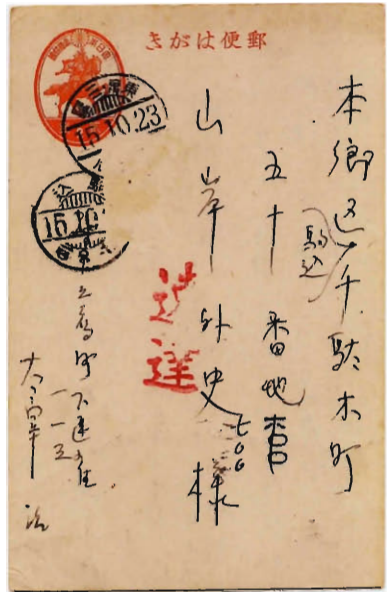 郵便はがき
15.10.23
15.10
本郷区千駄木町
駒込
五十番地
山岸外史様
速達
下連雀
一一三
太宰治